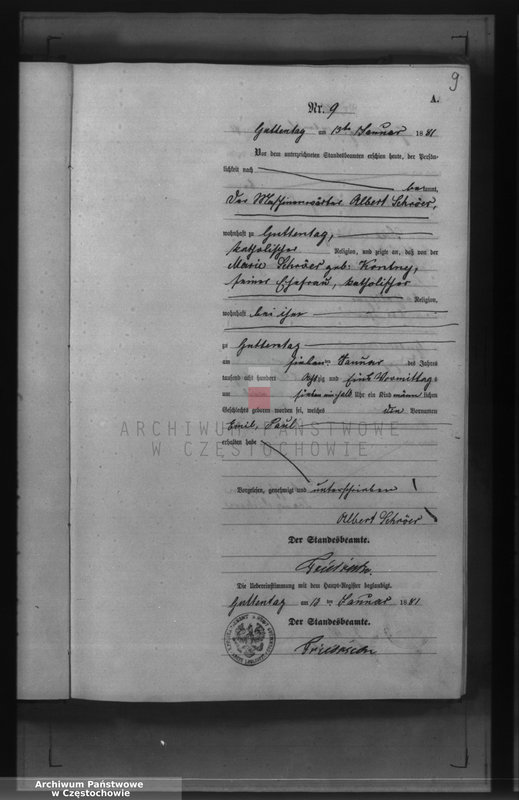 9
A.
Nr. 9
Guttentag am 13ten Januar 1881
Vor dem unterzeichneten Standesbeamten erschien heute, der Persön-
lichkeit nach
bekannt,
der Maschinenwärter Albert Schröer,
wohnhaft zu Guttentag,
katholischer Religion, und zeigte an, daß von der
Marie Schröer geb: Kontny,
seiner Ehefrau, katholischer
Religion,
wohnhaft bei ihm
zu Guttentag
am sieben ten Januar des Jahres
tausend acht hundert Achtzig und Eins Vormittags
um sieben ein halb Uhr ein Kind männlichen
Geschlechts geboren worden sei, welches die Vornamen
Emil, Paul
erhalten habe
Vorgelesen, genehmigt und unterschrieben
Albert Schröer
Der Standesbeamte.
Die Uebereinstimmung mit dem Haupt-Register beglaubigt.
Guttentag am 13 ten Januar 1881
Der Standesbeamte.
ARCHIWUM PAŃSTWOWE
W CZĘSTOCHOWIE
Archiwum Państwowe
w Częstochowie